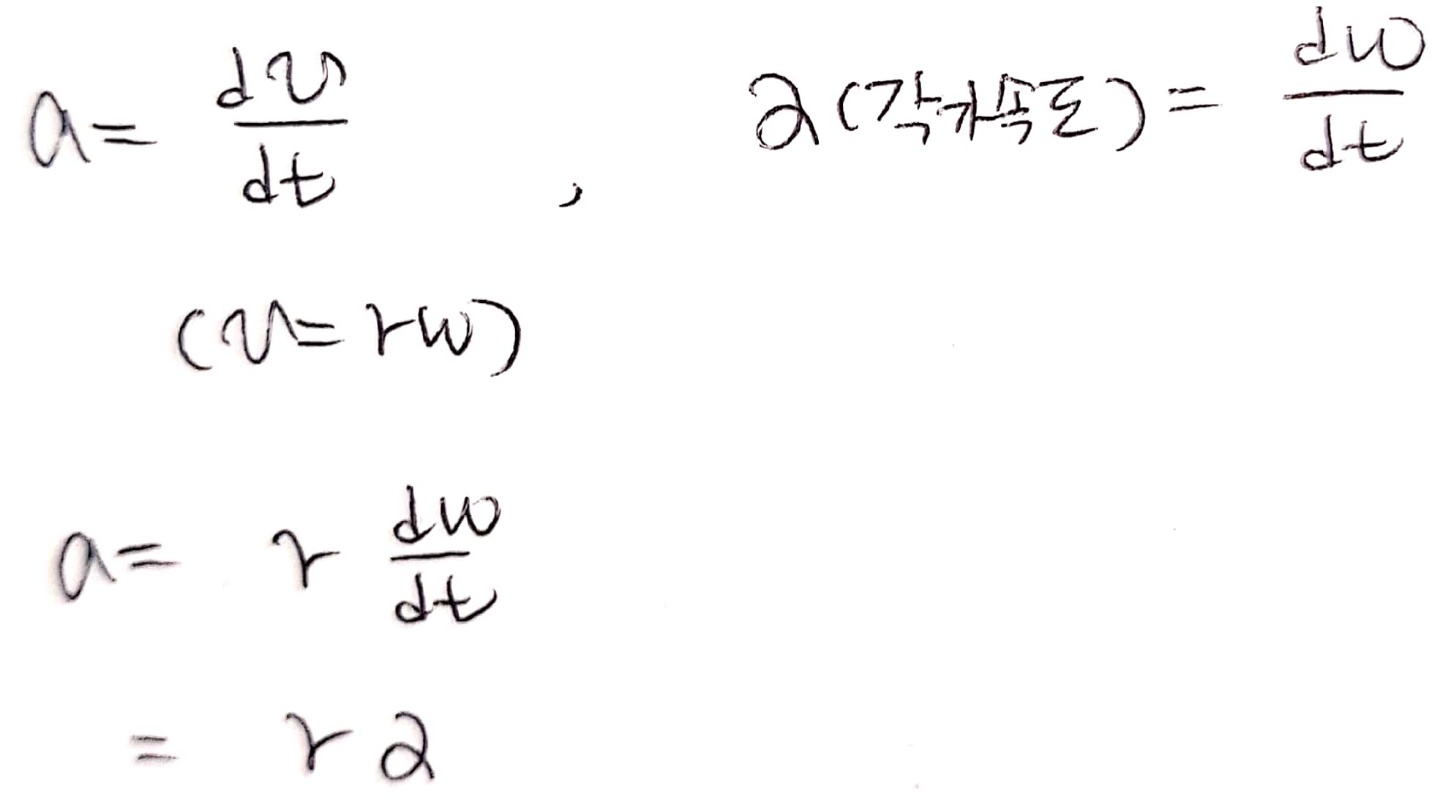 a = dv/dt , α(각가속도) = dω/dt
(v = rω)
a = r dω/dt
= rα